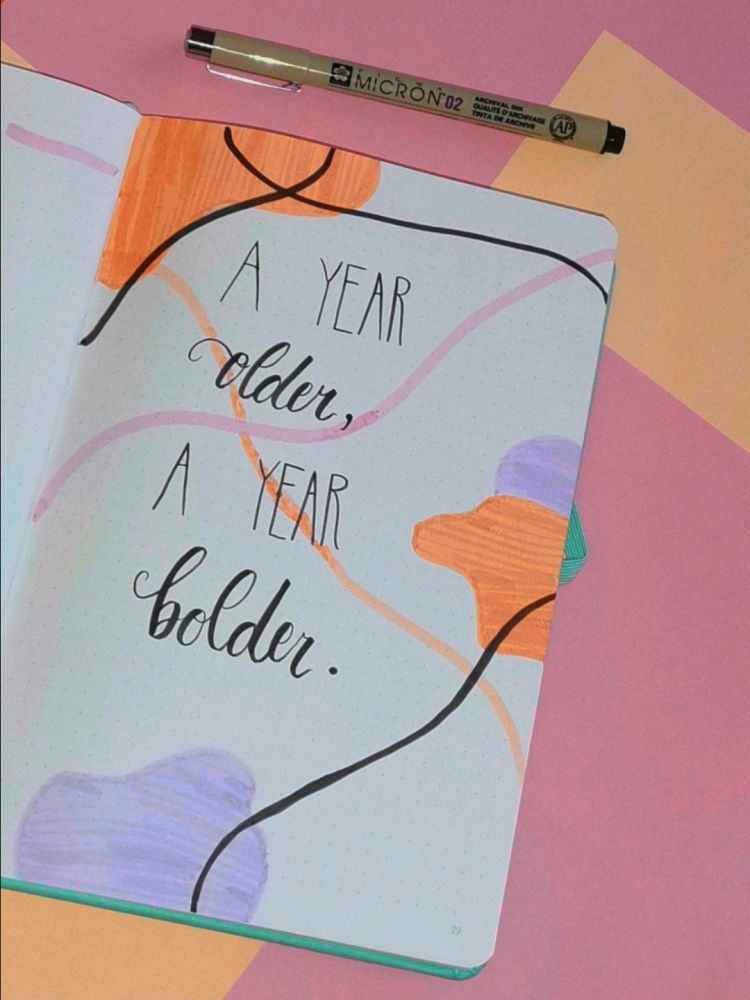 PIGMA
MICRON 02
ARCHIVAL INK
QUALITÉ D'ARCHIVAGE
TINTA DE ARCHIVE
AP
A YEAR
older,
A YEAR
bolder.
39